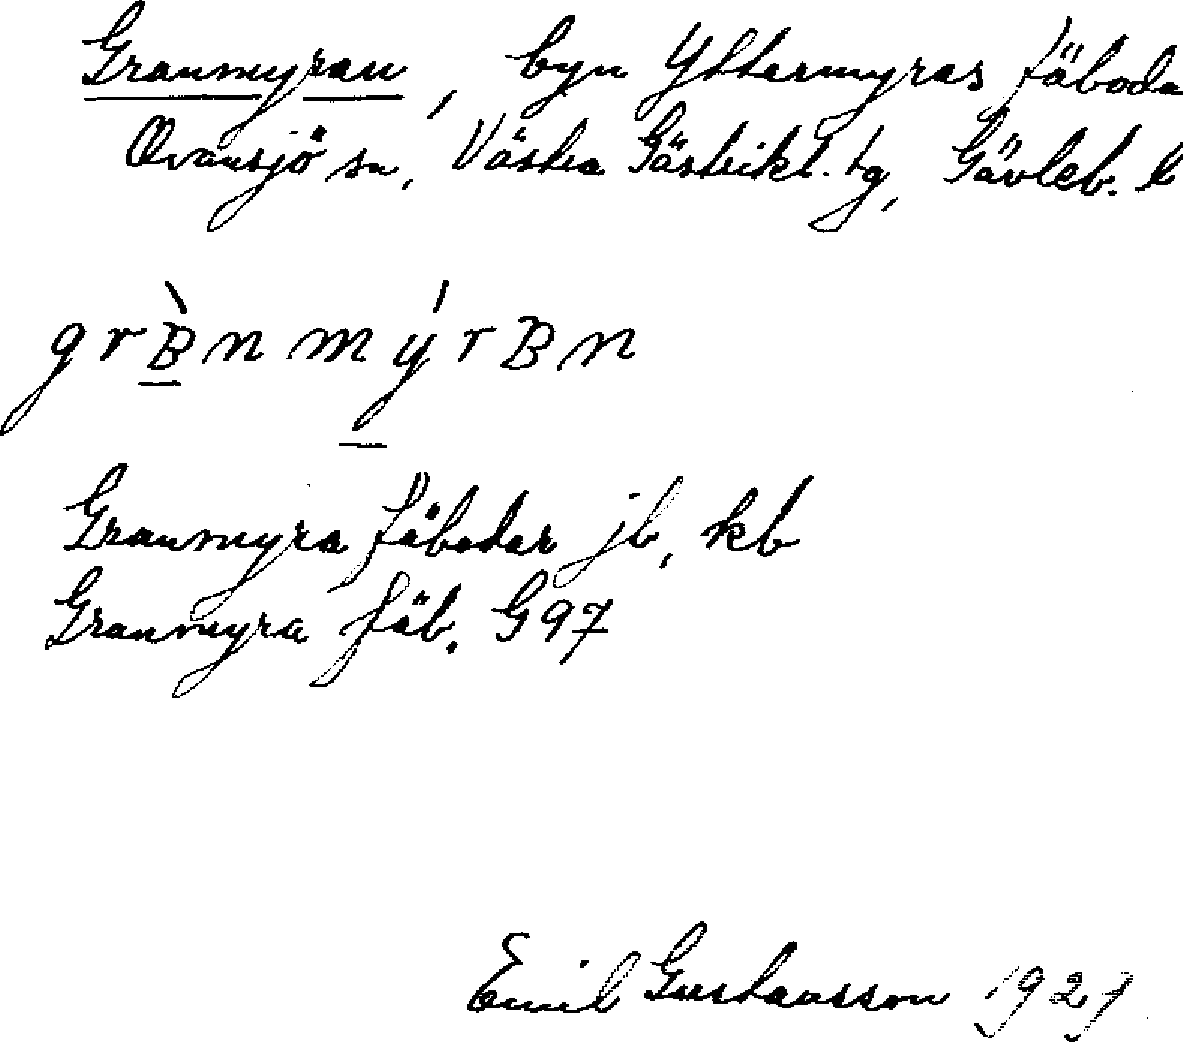 Granmyran, byn Yttermyras fäboda
Ovansjö sn, Västra Gästrikl. tg, Gävleb. l
grBnmýrBn
Granmyra fäbodar jb, kb
Granmyra fäb. G97
Emil Gustavsson 1927